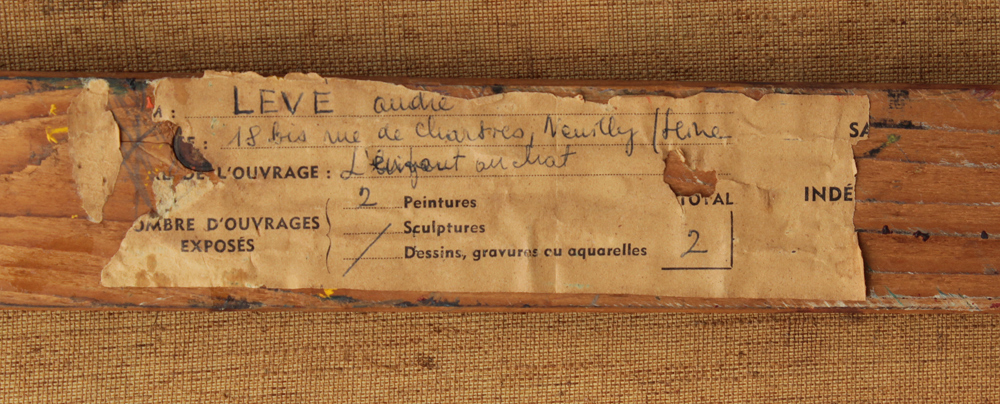 A : LEVE andré
E : 18 bis rue de Chartres, Neuilly / Seine SA
RE DE L'OUVRAGE : L'enfant au chat
OMBRE D'OUVRAGES EXPOSÉS
2 Peintures
Sculptures
Dessins, gravures ou aquarelles
TOTAL
2
INDÉ